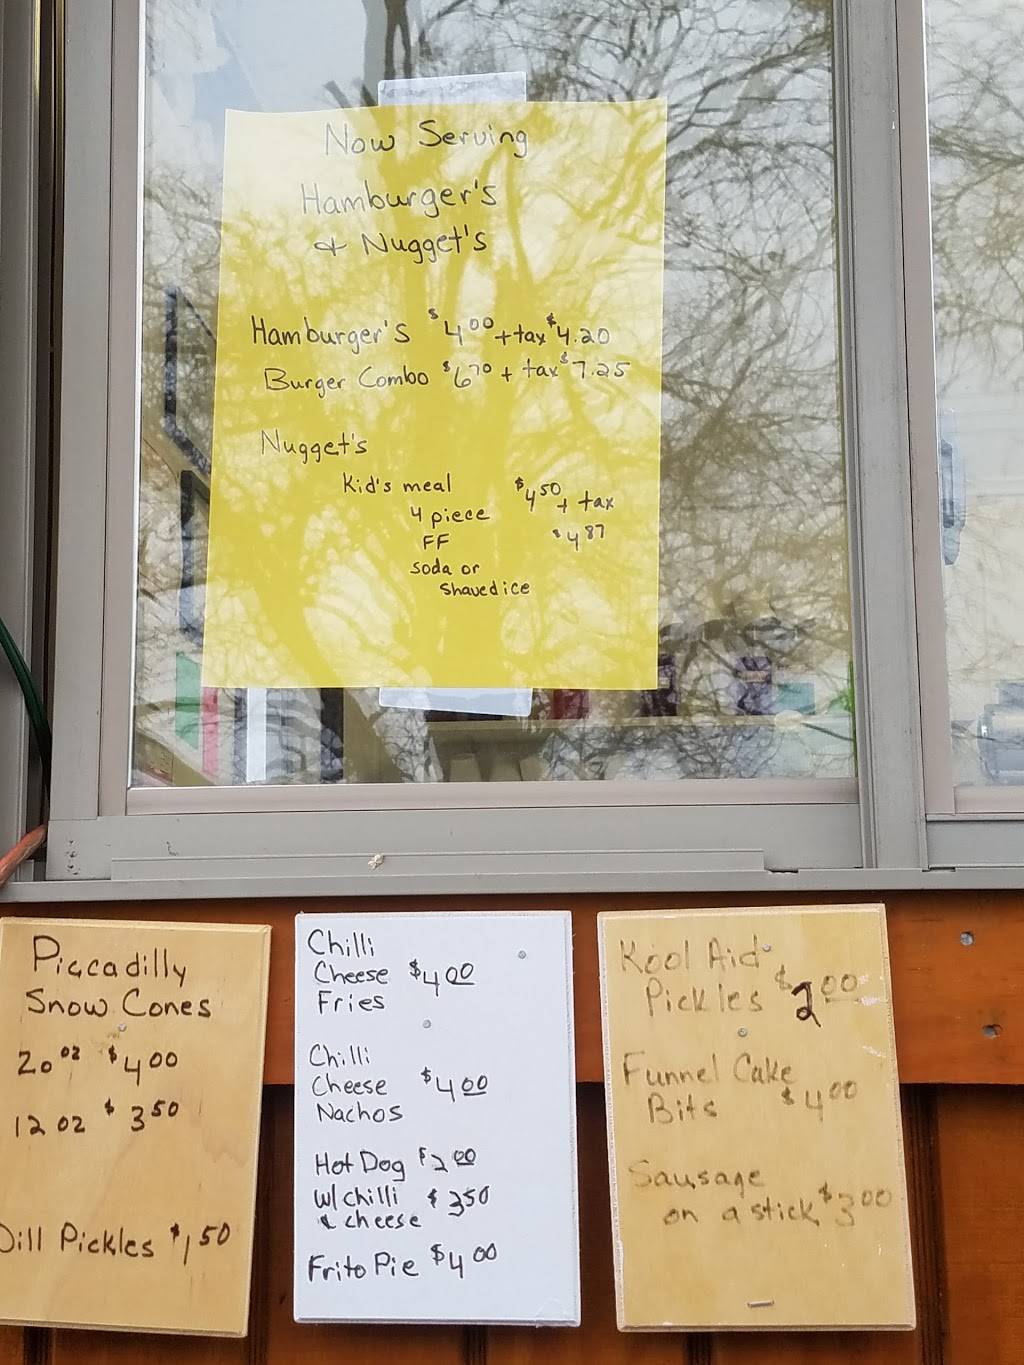 Now Serving
Hamburger's
& Nugget's
Hamburger's $4.00 + tax $4.20
Burger Combo $6.70 + tax $7.25
Nugget's
Kid's meal $4.50 + tax
4 piece $4.87
FF
soda or
Shaved ice
Piccadilly
Snow Cones
20 oz $4.00
12 oz $3.50
Dill Pickles $1.50
Chilli
Cheese $4.00
Fries
Chilli
Cheese $4.00
Nachos
Hot Dog $2.00
w/ chilli $3.50
& cheese
Frito Pie $4.00
Kool Aid
Pickles $2.00
Funnel Cake
Bits $4.00
Sausage
on a stick $3.00